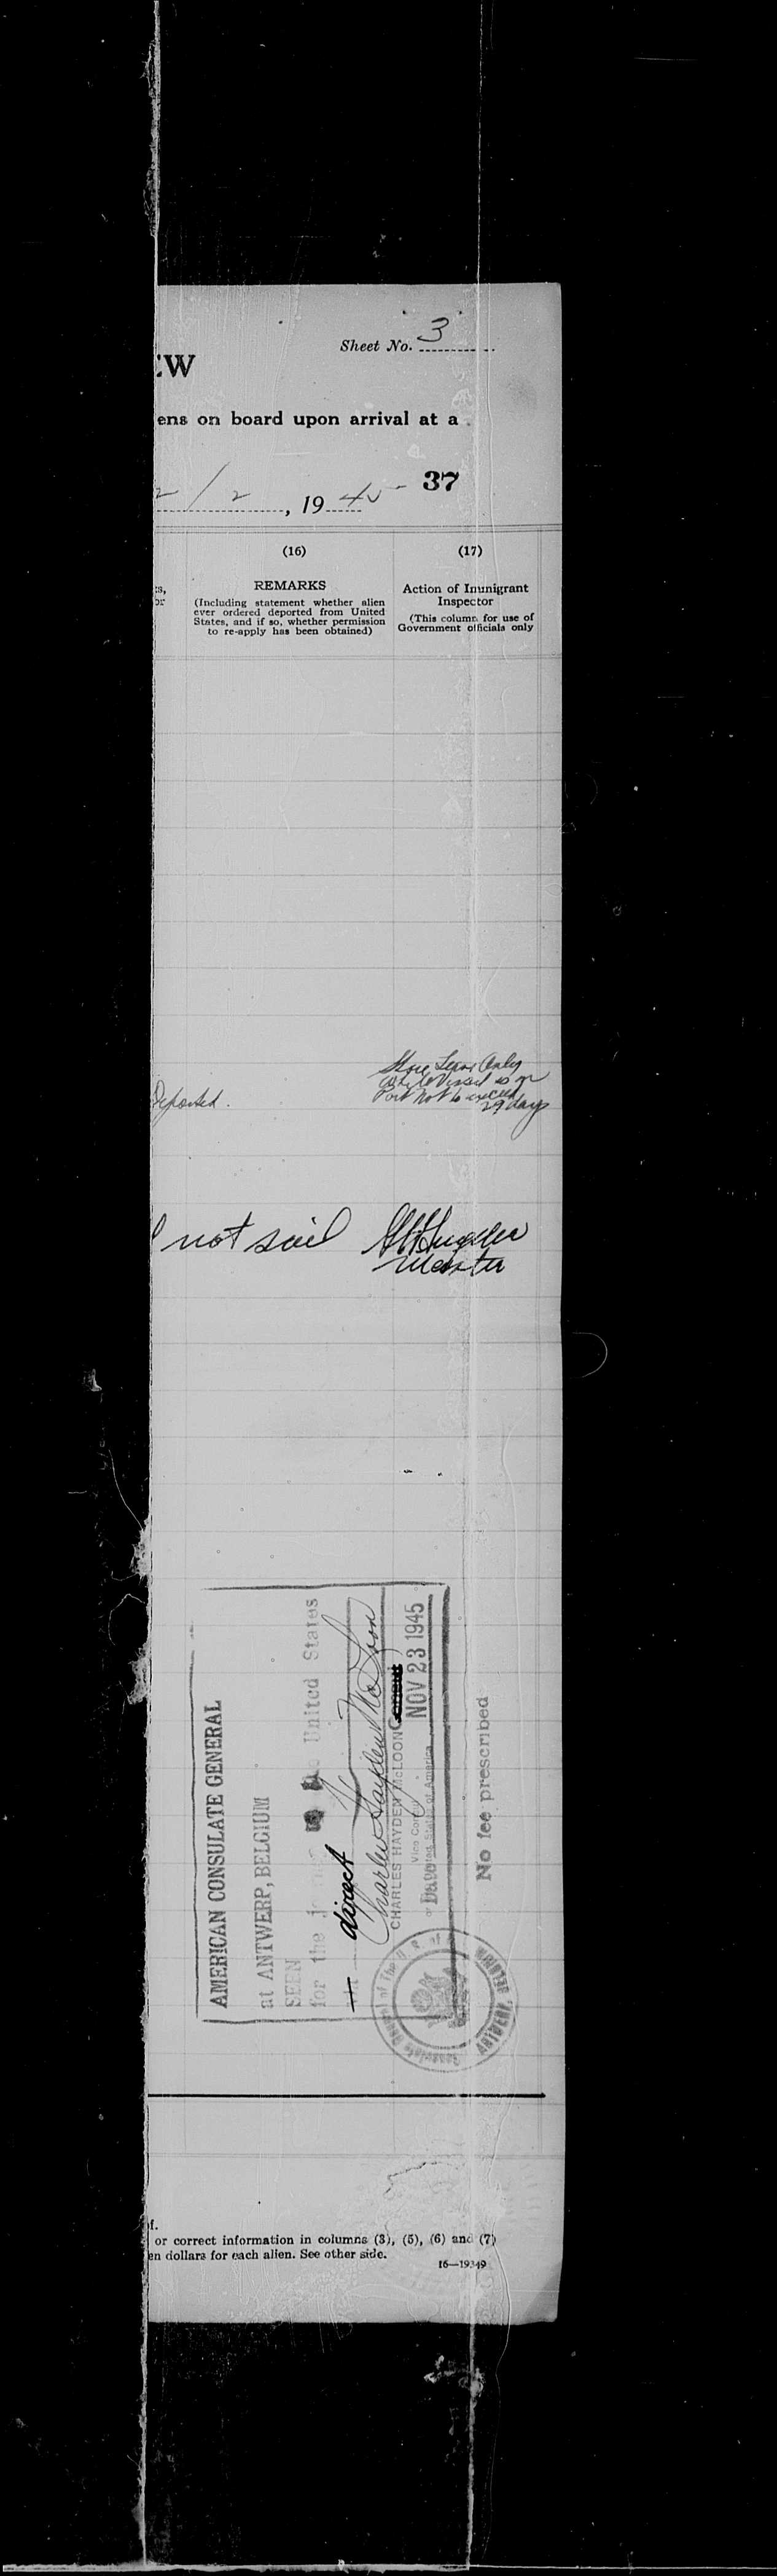 Sheet No. 3
EW
ens on board upon arrival at a
2/2, 1945 37
(16)
(17)
rs,
or
REMARKS
(Including statement whether alien
ever ordered deported from United
States, and if so, whether permission
to re-apply has been obtained)
Action of Immigrant
Inspector
(This column for use of
Government officials only
Shore Leave Only
while Vessel is in
Port Not to exceed
29 days
Deported.
not sail
Master
AMERICAN CONSULATE GENERAL
at ANTWERP, BELGIUM
SEEN
for the journey to the United States
direct
Charles Hayden McLoon
CHARLES HAYDEN McLOON Consul
Vice Consul
of United States of America
Date NOV 23 1945
No fee prescribed
ANTWERP
of.
or correct information in columns (3), (5), (6) and (7)
en dollars for each alien. See other side.
16—19349